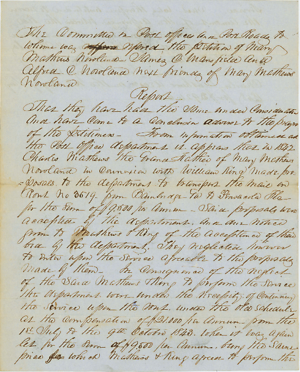 The Committee on Post offices and Post Roads to
whom was referred the petition of Mary
Mathews Nowland James C Mansfield and
Alfred C Nowland next friends of Mary Mathews
Nowland
Report
That they have had the same under Consideration
and have come to a conclusion adverse to the prayer
of the petitioners - From information obtained at
the Post office department it appears that in 1842
Charles Mathews the Grand father of Mary Mathews
Nowland in Connexion with William King made pro-
posals to the department to transport the mail on
Route No 3519 from Bainbridge to Pensacola Fla
in the Sum of $9800 pr Annum. Said proposals were
accepted by the department and due notice
given to Mathews & King of the acceptance of their
bid by the department, They neglected however
to enter upon the Service agreeable to the proposals
made by them. In consequence of the neglect
of the Said Mathews & King to perform the Service
the department were under the necessity of Continuing
the Service upon the Route under the old Schedule
at the Compensation of per Annum from the
1st July to the 9th October 1843. when it was let upon
at for the Sum of $9800 pr Annum being the Same
price for which Mathews & King agreed to perform the